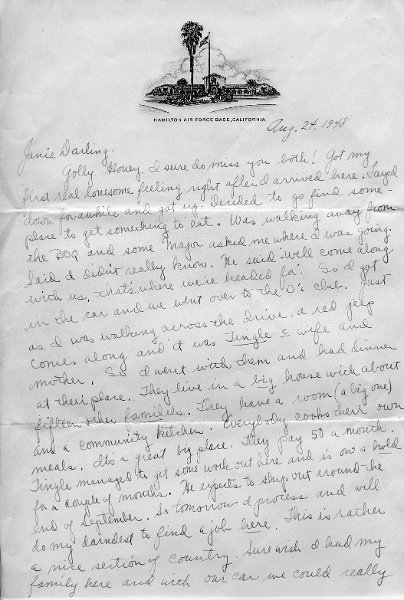 HAMILTON AIR FORCE BASE, CALIFORNIA
Aug. 24, 1948
Janie Darling:
Golly Honey, I sure do miss you both! Got my
first real lonesome feeling right after I arrived here. Layed
down for awhile and got up & decided to go find some-
place to get something to eat. Was walking away from
the BOQ and some Major asked me where I was going.
Said I didn't really know. He said: well come along
with us, that's where we're headed for. So I got
in the car and we went over to the O's club. Just
as I was walking across the drive, a red jeep
comes along and it was Tingle c̄ wife and
mother. So I went with them and had dinner
at their place. They live in a big house with about
fifteen other families. They have a room (a big one)
and a community kitchen. Everybody cooks their own
meals. It's a great big place. They pay 50 a month.
Tingle managed to get some work out here and is on a hold
for a couple of months. He expects to ship out around the
end of September. So tomorrow I process and will
do my darndest to find a job here. This is rather
a nice section of country. Sure wish I had my
family here and with our car we could really